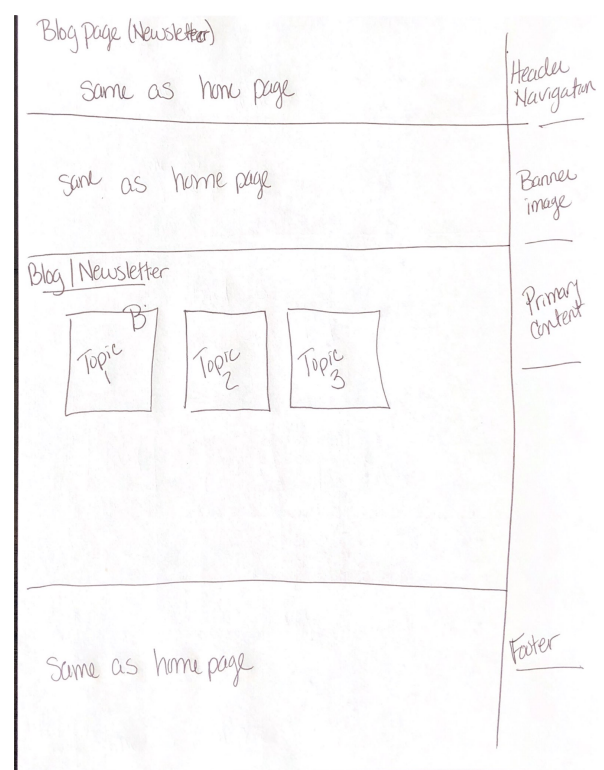 Blog page (Newsletter)
same as home page
Header
Navigation
same as home page
Banner
image
Blog | Newsletter
Primary
Content
B
Topic
1
Topic
2
Topic
3
Same as home page
Footer